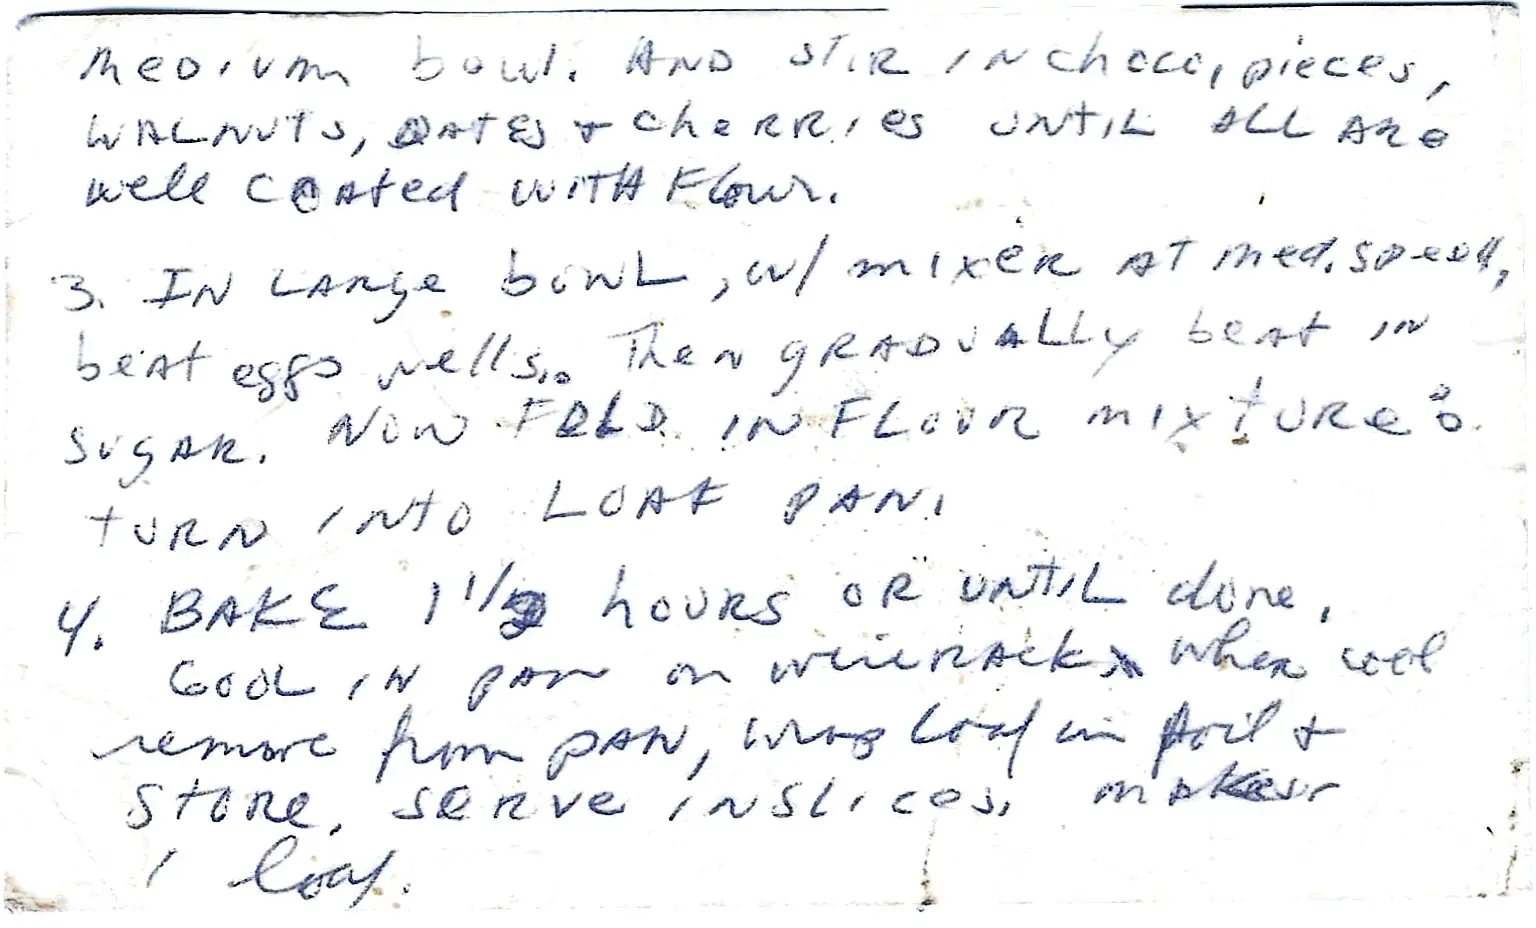 medium bowl. AND STIR IN choco, pieces,
WALNUTS, DATES + CheRRies UNTIL ALL ARe
well COATed WITH Flour.
3. IN LARge bowL, w/ mixeR AT med. speed,
beAT eggs wells.. Then gRADUALLy beat in
SUgAR. NOW FOLD IN FLOUR mixTURe.
TURN INTO LOAF PAN.
4. BAKE 1 1/2 hOURS OR UNTIL done.
COOL IN PAN on wire RAck. When cool
remove from PAN, wrap loaf in foil +
STORe. SeRve IN SLices. mAkes
1 loaf.